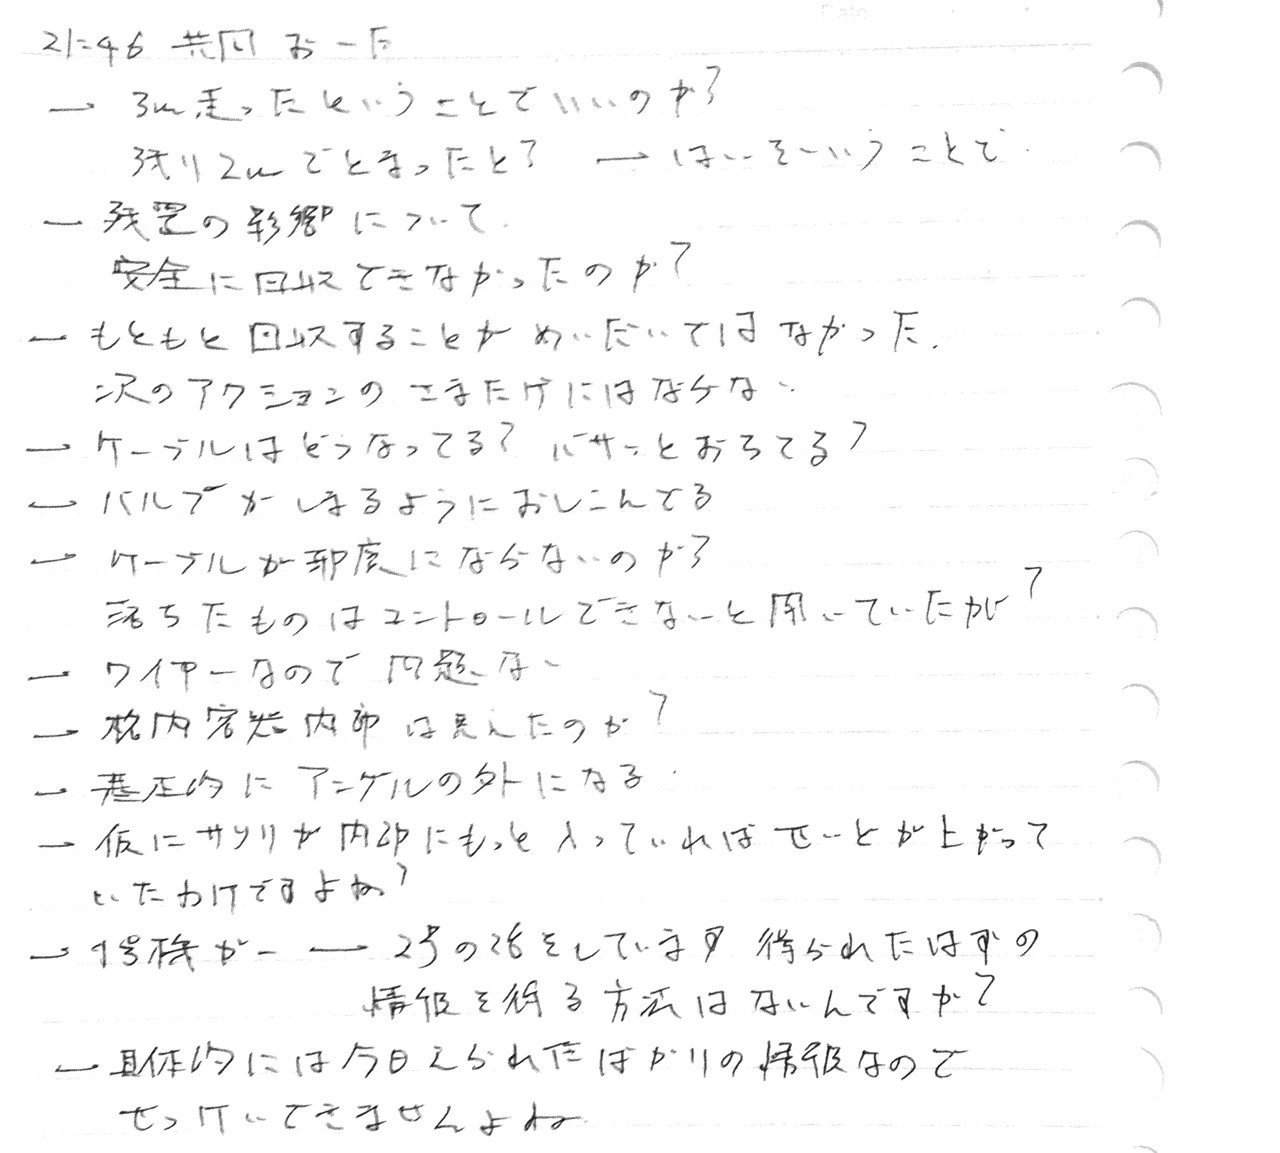 21:46 共同 おーた
→ 3m走ったということでいいのか?
残り2mでとまったと? → はいそういうことで
→ 残置の影響について
安全に回収できなかったのか?
→ もともと回収することがめいだいではなかった.
次のアクションのさまたげにはならない
→ ケーブルはどうなってる? バサッとおちてる?
→ バルブがしまるようにおしこんでる
→ ケーブルが邪魔にならないのか?
落ちたものはコントロールできないと聞いていたが?
→ ワイヤーなので問題ない
→ 格内容器内部は見えたのか?
→ 基正的にアングルの外になる
→ 仮にサソリが内部にもっと入っていればせいどが上がって
いたわけですよね?
→ 1号機がー → 2号の話をしています 得られたはずの
情報を得る方法はないんですか?
→ 具体的には今日えられたばかりの情報なので
せっけいできませんよね